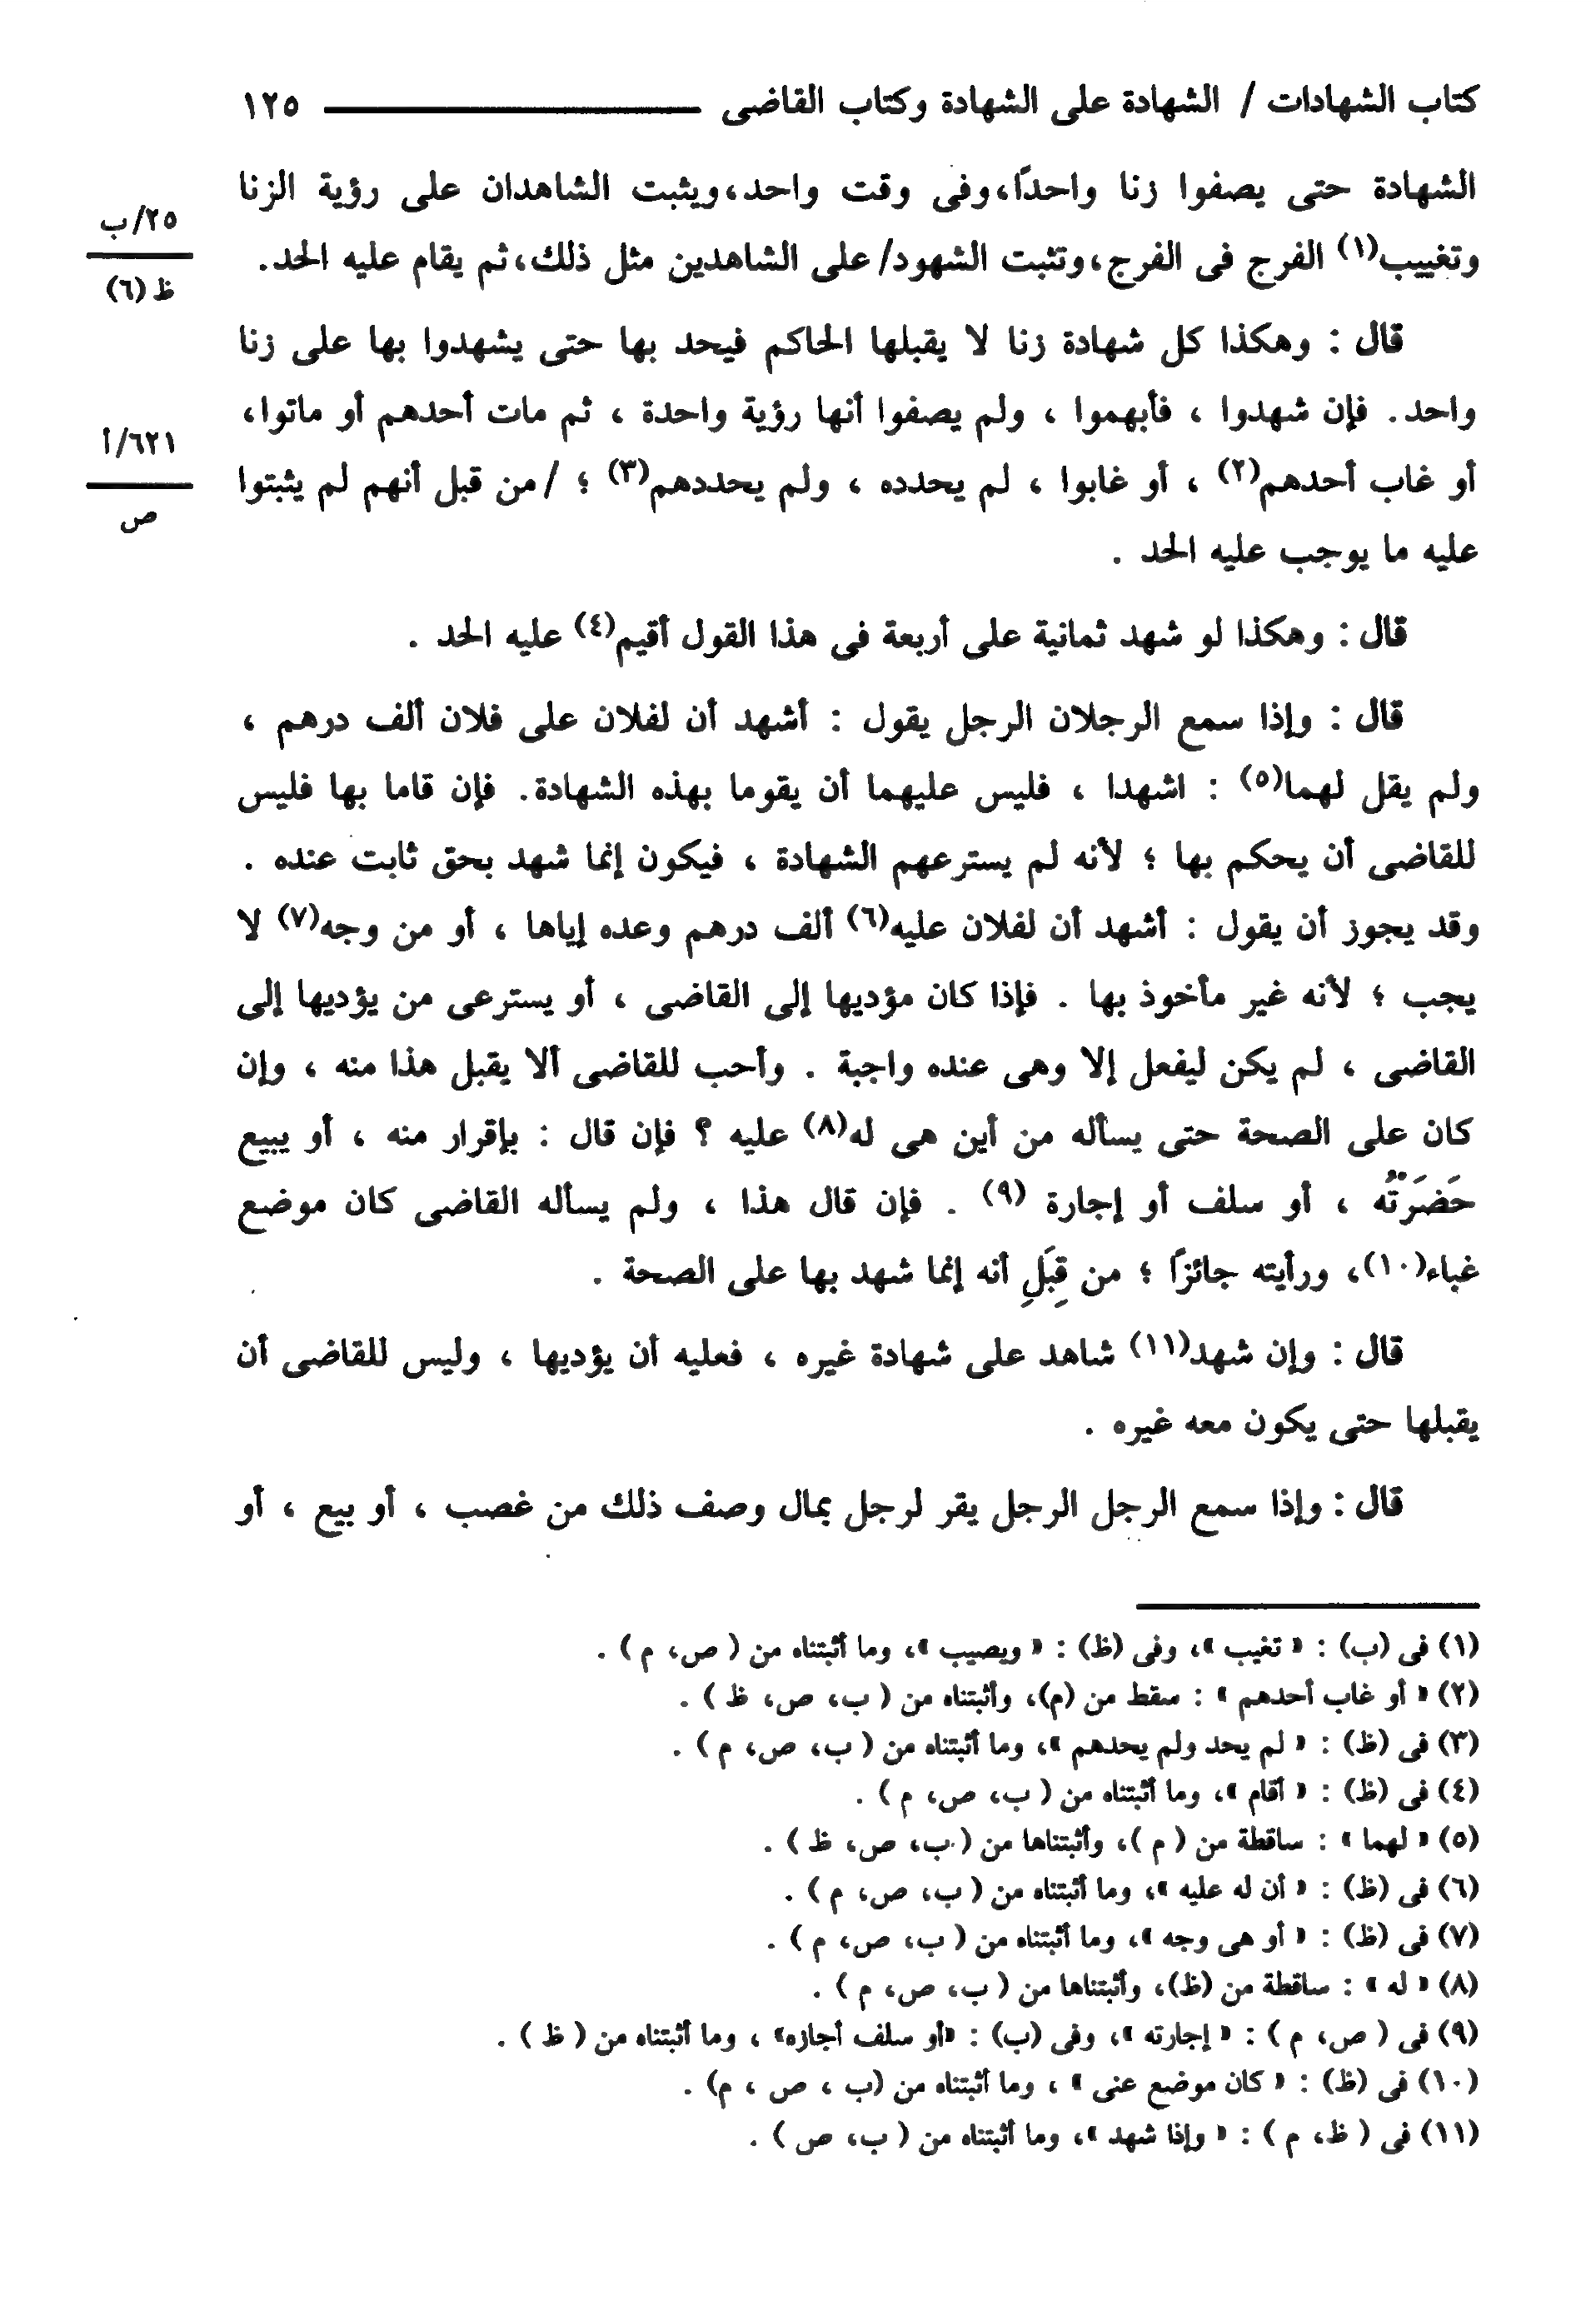 كتاب الشهادات / الشهادة على الشهادة وكتاب القاضى ـــــــ ١٢٥
الشهادة حتى يصفوا زنا واحدًا،وفى وقت واحد،ويثبت الشاهدان على رؤية الزنا
وتغييب(١) الفرج فى الفرج،وتثبت الشهود/ على الشاهدين مثل ذلك،ثم يقام عليه الحد.
٢٥/ب
ظ (٦)
قال : وهكذا كل شهادة زنا لا يقبلها الحاكم فيحد بها حتى يشهدوا بها على زنا
واحد. فإن شهدوا ، فأبهموا ، ولم يصفوا أنها رؤية واحدة ، ثم مات أحدهم أو ماتوا،
أو غاب أحدهم(٢) ، أو غابوا ، لم يحدده ، ولم يحددهم(٣) ؛ /من قبل أنهم لم يثبتوا
٦٢١/أ
ص
عليه ما يوجب عليه الحد .
قال : وهكذا لو شهد ثمانية على أربعة فى هذا القول أقيم(٤) عليه الحد .
قال : وإذا سمع الرجلان الرجل يقول : أشهد أن لفلان على فلان ألف درهم ،
ولم يقل لهما(٥) : اشهدا ، فليس عليهما أن يقوما بهذه الشهادة. فإن قاما بها فليس
للقاضى أن يحكم بها ؛ لأنه لم يسترعهم الشهادة ، فيكون إنما شهد بحق ثابت عنده .
وقد يجوز أن يقول : أشهد أن لفلان عليه(٦) ألف درهم وعده إياها ، أو من وجه(٧) لا
يجب ؛ لأنه غير مأخوذ بها . فإذا كان مؤديها إلى القاضى ، أو يسترعى من يؤديها إلى
القاضى ، لم يكن ليفعل إلا وهى عنده واجبة . وأحب للقاضى ألا يقبل هذا منه ، وإن
كان على الصحة حتى يسأله من أين هى له(٨) عليه ؟ فإن قال : بإقرار منه ، أو يبيع
حَضَرْتُه ، أو سلف أو إجارة (٩) . فإن قال هذا ، ولم يسأله القاضى كان موضع
غباء(١٠)، ورأيته جائزًا ؛ من قِبَلِ أنه إنما شهد بها على الصحة .
قال : وإن شهد(١١) شاهد على شهادة غيره ، فعليه أن يؤديها ، وليس للقاضى أن
يقبلها حتى يكون معه غيره .
قال : وإذا سمع الرجل الرجل يقر لرجل بمال وصف ذلك من غصب ، أو بيع ، أو
(١) فى (ب) : « تغيب »، وفى (ظ) : « ويصيب »، وما أثبتناه من ( ص، م ) .
(٢) « أو غاب أحدهم » : سقط من (م)، وأثبتناه من ( ب، ص، ظ ) .
(٣) فى (ظ) : « لم يحد ولم يحدهم »، وما أثبتناه من ( ب، ص، م ) .
(٤) فى (ظ) : « أقام »، وما أثبتناه من ( ب، ص، م ) .
(٥) « لهما » : ساقطة من ( م )، وأثبتناها من ( ب، ص، ظ ) .
(٦) فى (ظ) : « أن له عليه »، وما أثبتناه من ( ب، ص، م ) .
(٧) فى (ظ) : « أو هى وجه »، وما أثبتناه من ( ب، ص، م ) .
(٨) « له » : ساقطة من (ظ)، وأثبتناها من ( ب، ص، م ) .
(٩) فى ( ص، م ) : « إجارته »، وفى (ب) : «أو سلف أجازه» ، وما أثبتناه من ( ظ ) .
(١٠) فى (ظ) : « كان موضع عنى » ، وما أثبتناه من (ب ، ص ، م) .
(١١) فى ( ظ، م ) : « وإذا شهد »، وما أثبتناه من ( ب، ص ) .